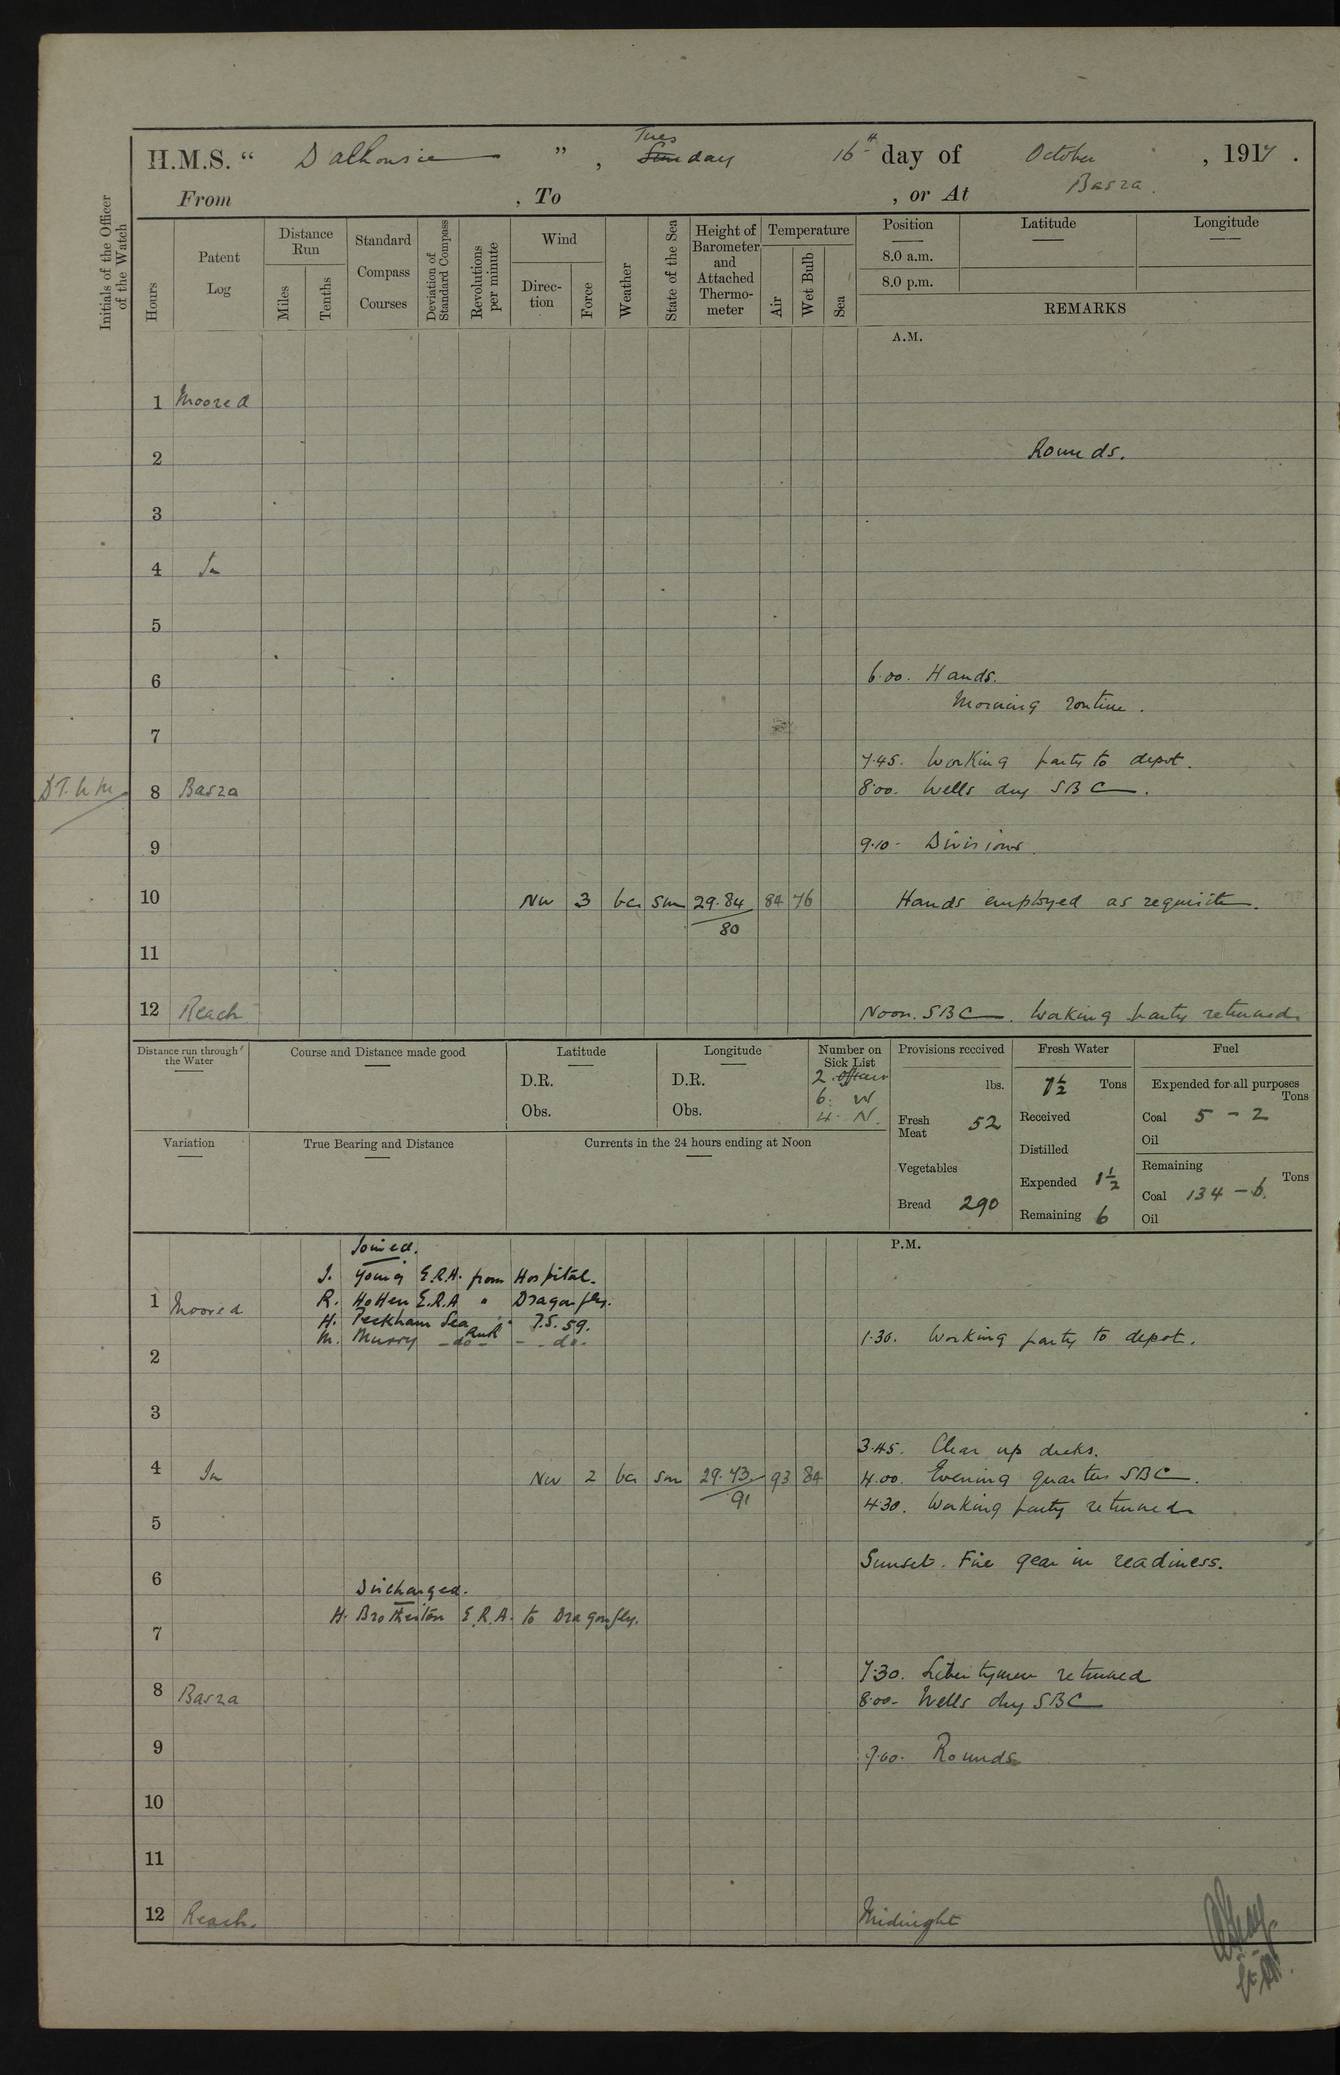 H.M.S. “ Dalhousie ” , Tues Sunday 16th day of October , 1917 .
From , To , or At Basra.
Initials of the Officer of the Watch
Hours
Patent Log
Distance Run
Miles
Tenths
Standard Compass Courses
Deviation of Standard Compass
Revolutions per minute
Wind
Direction
Force
Weather
State of the Sea
Height of Barometer and Attached Thermometer
Temperature
Air
Wet Bulb
Sea
Position
8.0 a.m.
8.0 p.m.
Latitude
Longitude
REMARKS
A.M.
1 Moored
2 Rounds.
3
4 In
5
6 6.00. Hands.
Morning routine.
7
7.45. Working party to depot.
8 Basra 8.00. Wells dry SBC.
9 9.10- Divisions.
10 NW 3 bc sm 29.84 84 76 Hands employed as requisite.
80
11
12 Reach Noon. SBC. Working party returned.
Distance run through the Water
Course and Distance made good
Latitude
D.R.
Obs.
Longitude
D.R.
Obs.
Number on Sick List
2 Officers
6. W
4. N.
Provisions received
lbs.
Fresh Meat 52
Vegetables
Bread 290
Fresh Water
7½ Tons
Received
Distilled
Expended 1½
Remaining 6
Fuel
Expended for all purposes
Tons
Coal 5 - 2
Oil
Remaining
Tons
Coal 134 - 6.
Oil
Variation
True Bearing and Distance
Currents in the 24 hours ending at Noon
P.M.
Joined.
J. Young E.R.A. from Hospital.
1 Moored R. Hotten E.R.A " Dragonfly.
H. Peckham Sea " T.S. 59.
M. Murry -do- - do-
1.30. Working party to depot.
2
3
3.45. Clear up decks.
4 In NW 2 bc sm 29.73 93 84 4.00. Evening quarters SBC.
91
4.30. Working party returned
5
Sunset. Fire gear in readiness.
6
Discharged.
H. Brotherton E.R.A. to Dragonfly.
7
7.30. Libertymen returned
8 Basra 8.00- Wells dry SBC
9 9.00. Rounds
10
11
12 Reach. Midnight